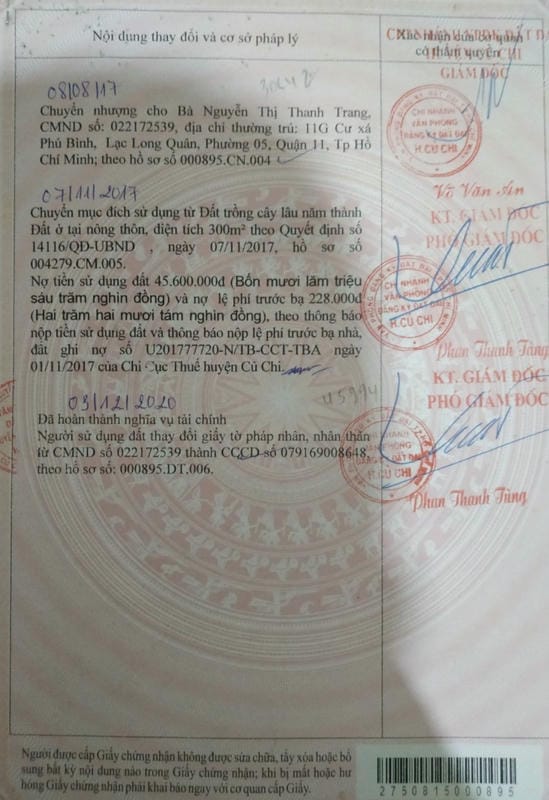 Nội dung thay đổi và cơ sở pháp lý
Xác nhận của cơ quan
có thẩm quyền
GIÁM ĐỐC
08/08/17
Chuyển nhượng cho Bà Nguyễn Thị Thanh Trang,
CMND số: 022172539, địa chỉ thường trú: 11G Cư xá
Phú Bình, Lạc Long Quân, Phường 05, Quận 11, Tp Hồ
Chí Minh; theo hồ sơ số 000895.CN.004
CHI NHÁNH
VĂN PHÒNG
ĐĂNG KÝ ĐẤT ĐAI
H.CỦ CHI
Võ Văn Ân
07/11/2017
Chuyển mục đích sử dụng từ Đất trồng cây lâu năm thành
Đất ở tại nông thôn, diện tích 300m² theo Quyết định số
14116/QĐ-UBND , ngày 07/11/2017, hồ sơ số
004279.CM.005.
Nợ tiền sử dụng đất 45.600.000đ (Bốn mươi lăm triệu
sáu trăm nghìn đồng) và nợ lệ phí trước bạ 228.000đ
(Hai trăm hai mươi tám nghìn đồng), theo thông báo
nộp tiền sử dụng đất và thông báo nộp lệ phí trước bạ nhà,
đất ghi nợ số U201777720-N/TB-CCT-TBA ngày
01/11/2017 của Chi Cục Thuế huyện Củ Chi.
KT. GIÁM ĐỐC
PHÓ GIÁM ĐỐC
CHI NHÁNH
VĂN PHÒNG
ĐĂNG KÝ ĐẤT ĐAI
H.CỦ CHI
Phan Thanh Tùng
03/12/2020
Đã hoàn thành nghĩa vụ tài chính
Người sử dụng đất thay đổi giấy tờ pháp nhân, nhân thân
từ CMND số 022172539 thành CCCD số 079169008648,
theo hồ sơ số: 000895.DT.006.
45994
KT. GIÁM ĐỐC
PHÓ GIÁM ĐỐC
CHI NHÁNH
VĂN PHÒNG
ĐĂNG KÝ ĐẤT ĐAI
H.CỦ CHI
Phan Thanh Tùng
Người được cấp Giấy chứng nhận không được sửa chữa, tẩy xóa hoặc bổ
sung bất kỳ nội dung nào trong Giấy chứng nhận; khi bị mất hoặc hư
hỏng Giấy chứng nhận phải khai báo ngay với cơ quan cấp Giấy.
2750815000895